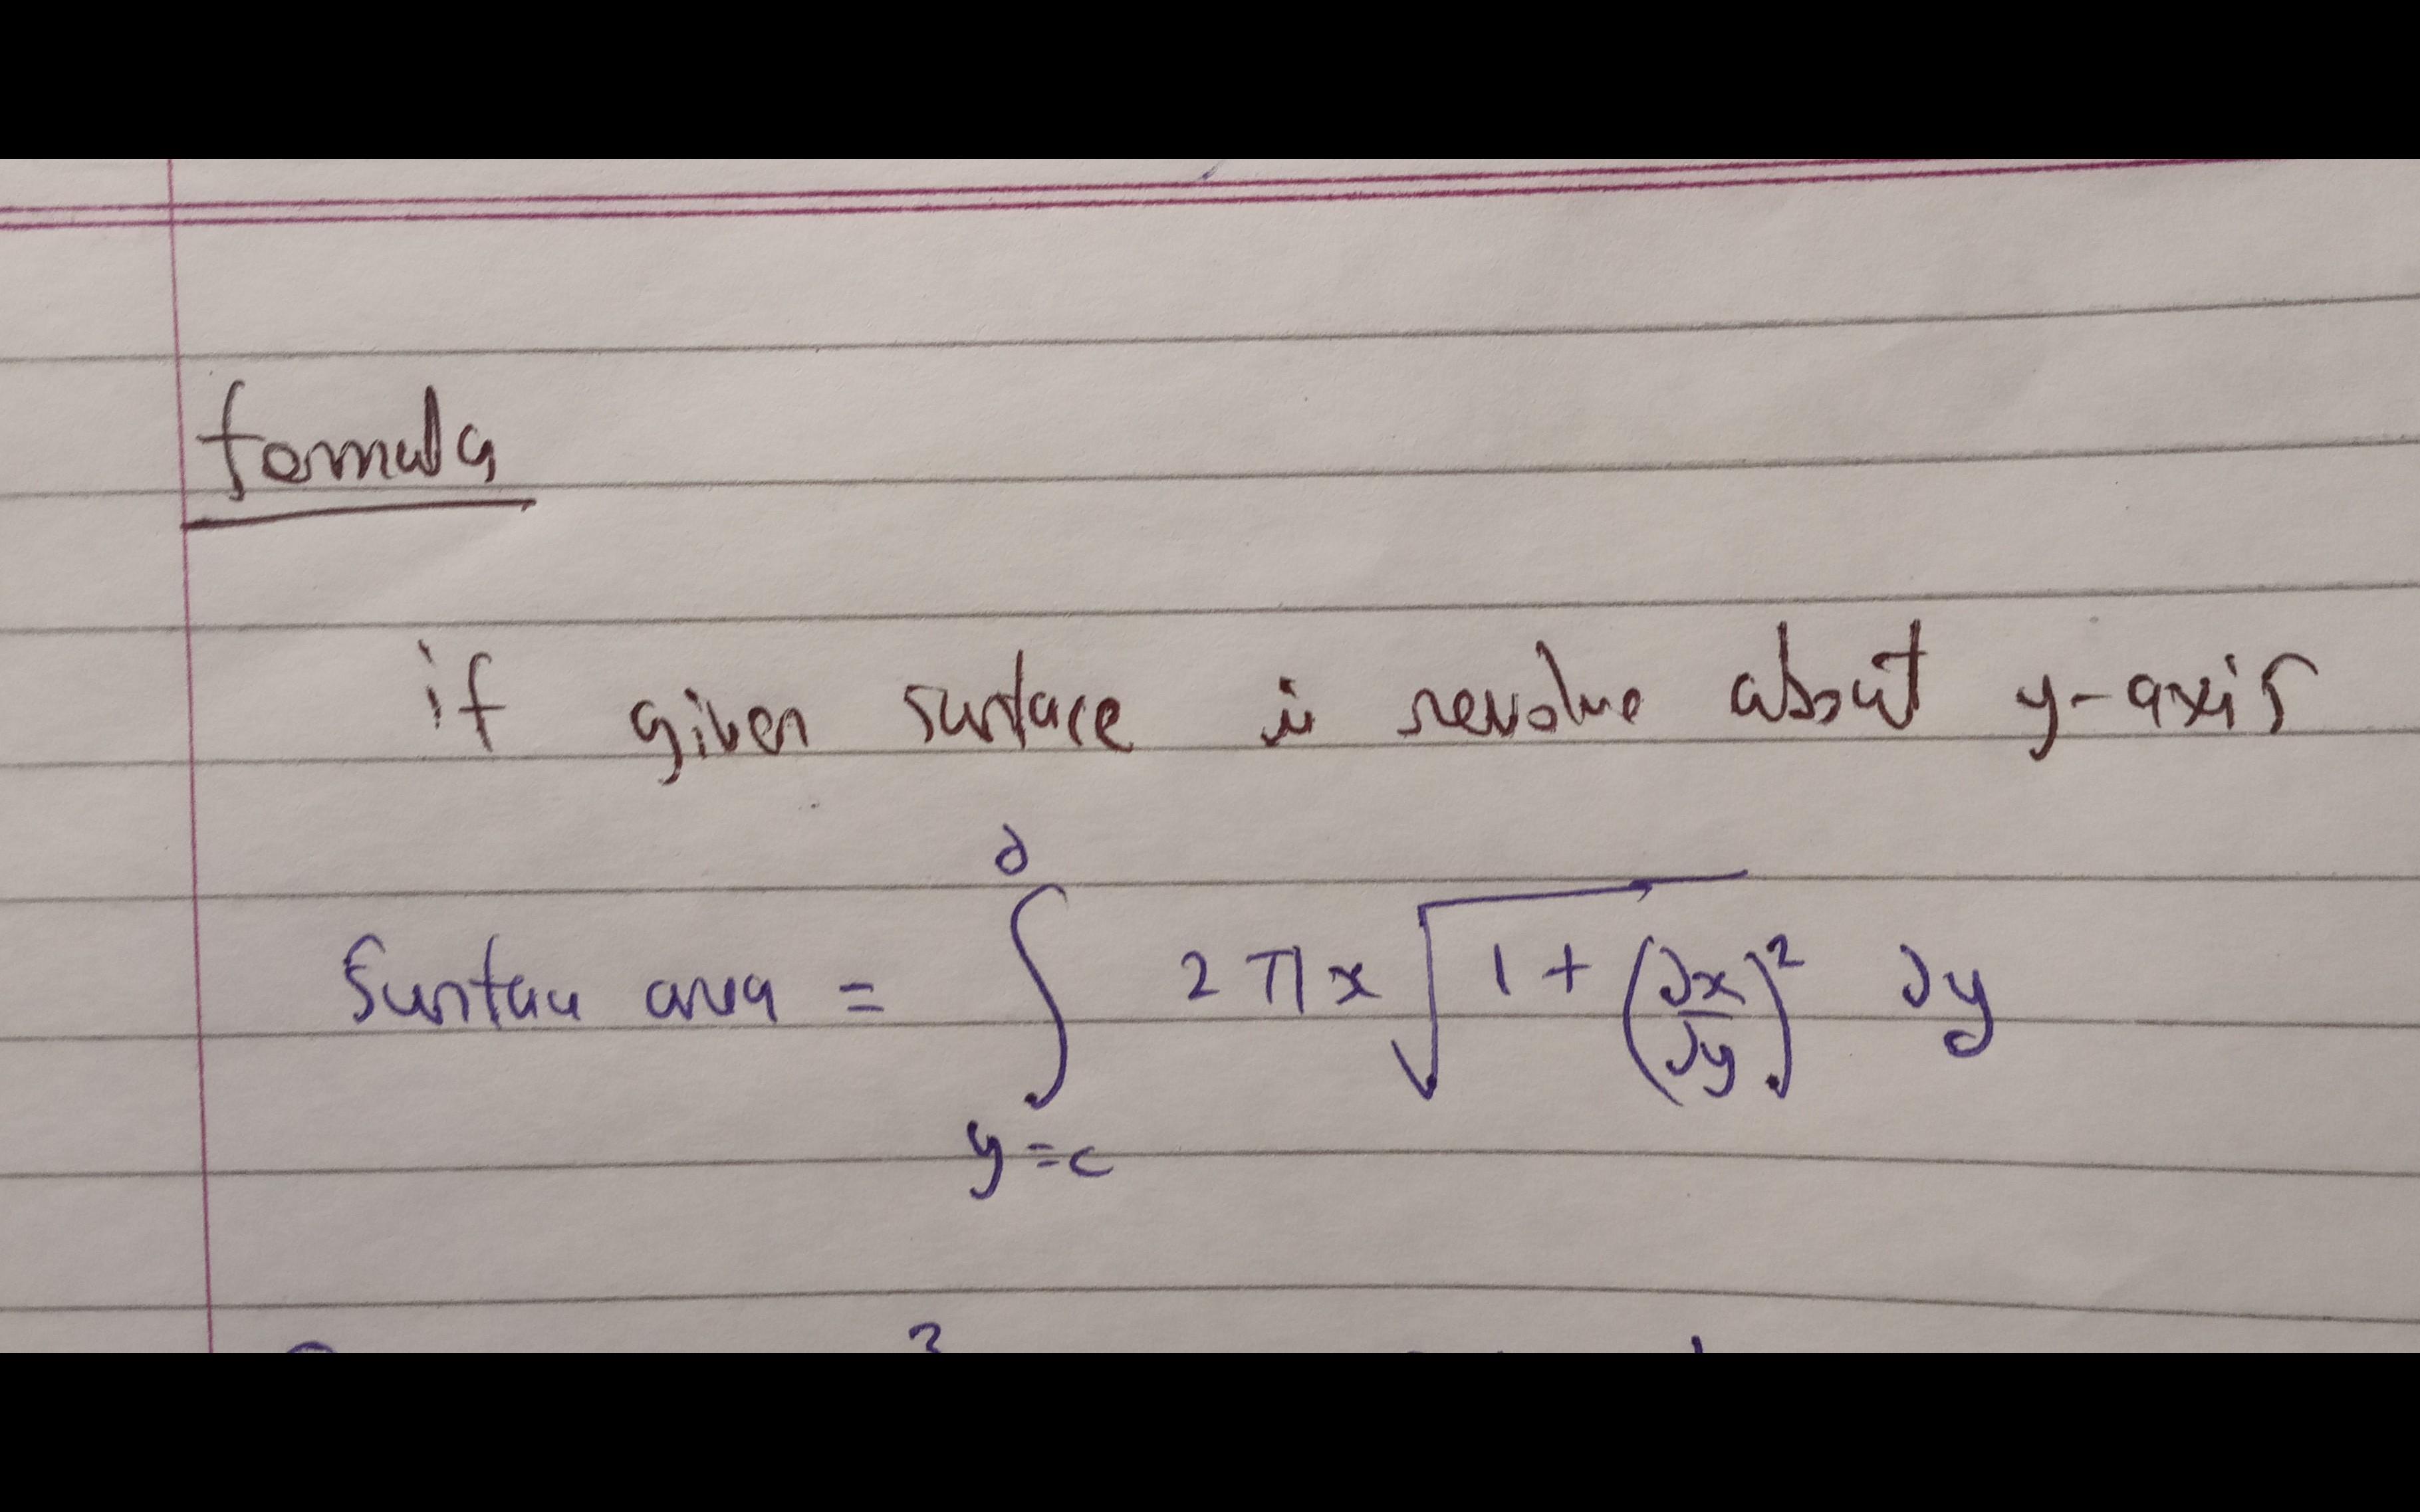 formula
if given surface is revolve about y-axis
d
Surface area = ∫ 2πx √(1 + (dx/dy)²) dy
y=c